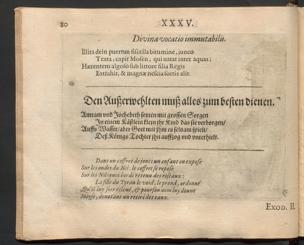 80
XXXV.
Devina vocatio immutabilis.
Illita dein puerum fiscilla bitumine, junco
Texta, capit Mosen; qui natat inter aquas:
Hærentem algoso sub littore filia Regis
Extrahit, & magnæ nescia sortis alit.
Den Außerwehlten muß alles zum besten dienen.
Amram und Jochebeth seinen mit grossen Sorgen
In einem Kästlein klein ihr Kind das sie verborgen/
Auffs Wasser/ aber Gott mit ihm es seltzam spielt/
Deß Königs Tochter ihn aufffzog und unterhielt.
Dans un coffret de joncs un enfant on expose
Sur les ondes du Nil: le coffret se repose
La fille du Tyran le void, le prend, ordonne
EXOD. II.